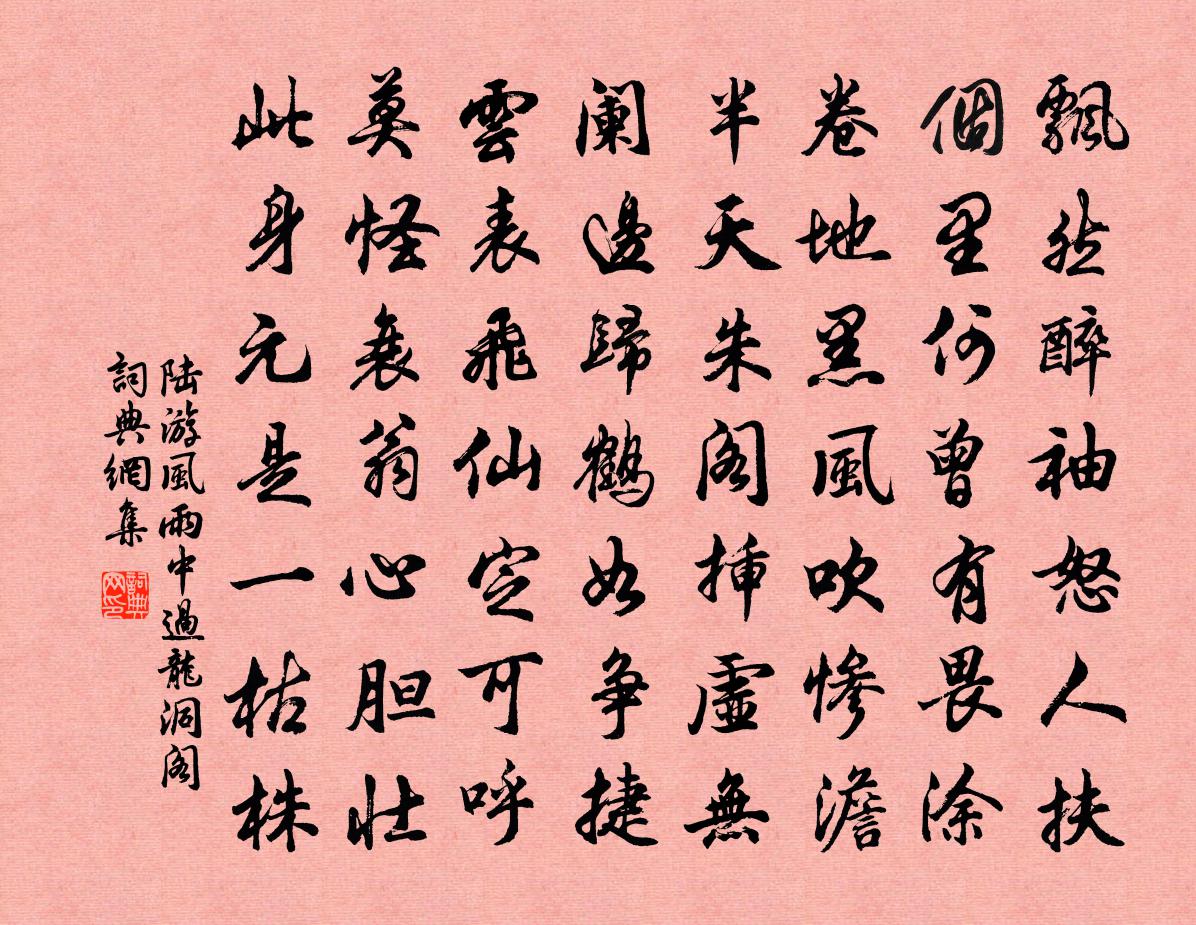 飄然醉袖怒人扶
個里何曾有畏涂
卷地黑風吹慘澹
半天朱閣插虛無
闌邊歸鶴如爭捷
雲表飛仙定可呼
莫怪衰翁心胆壯
此身元是一枯株
陆游風雨中過龍洞阁
詞典網集
詞典网印